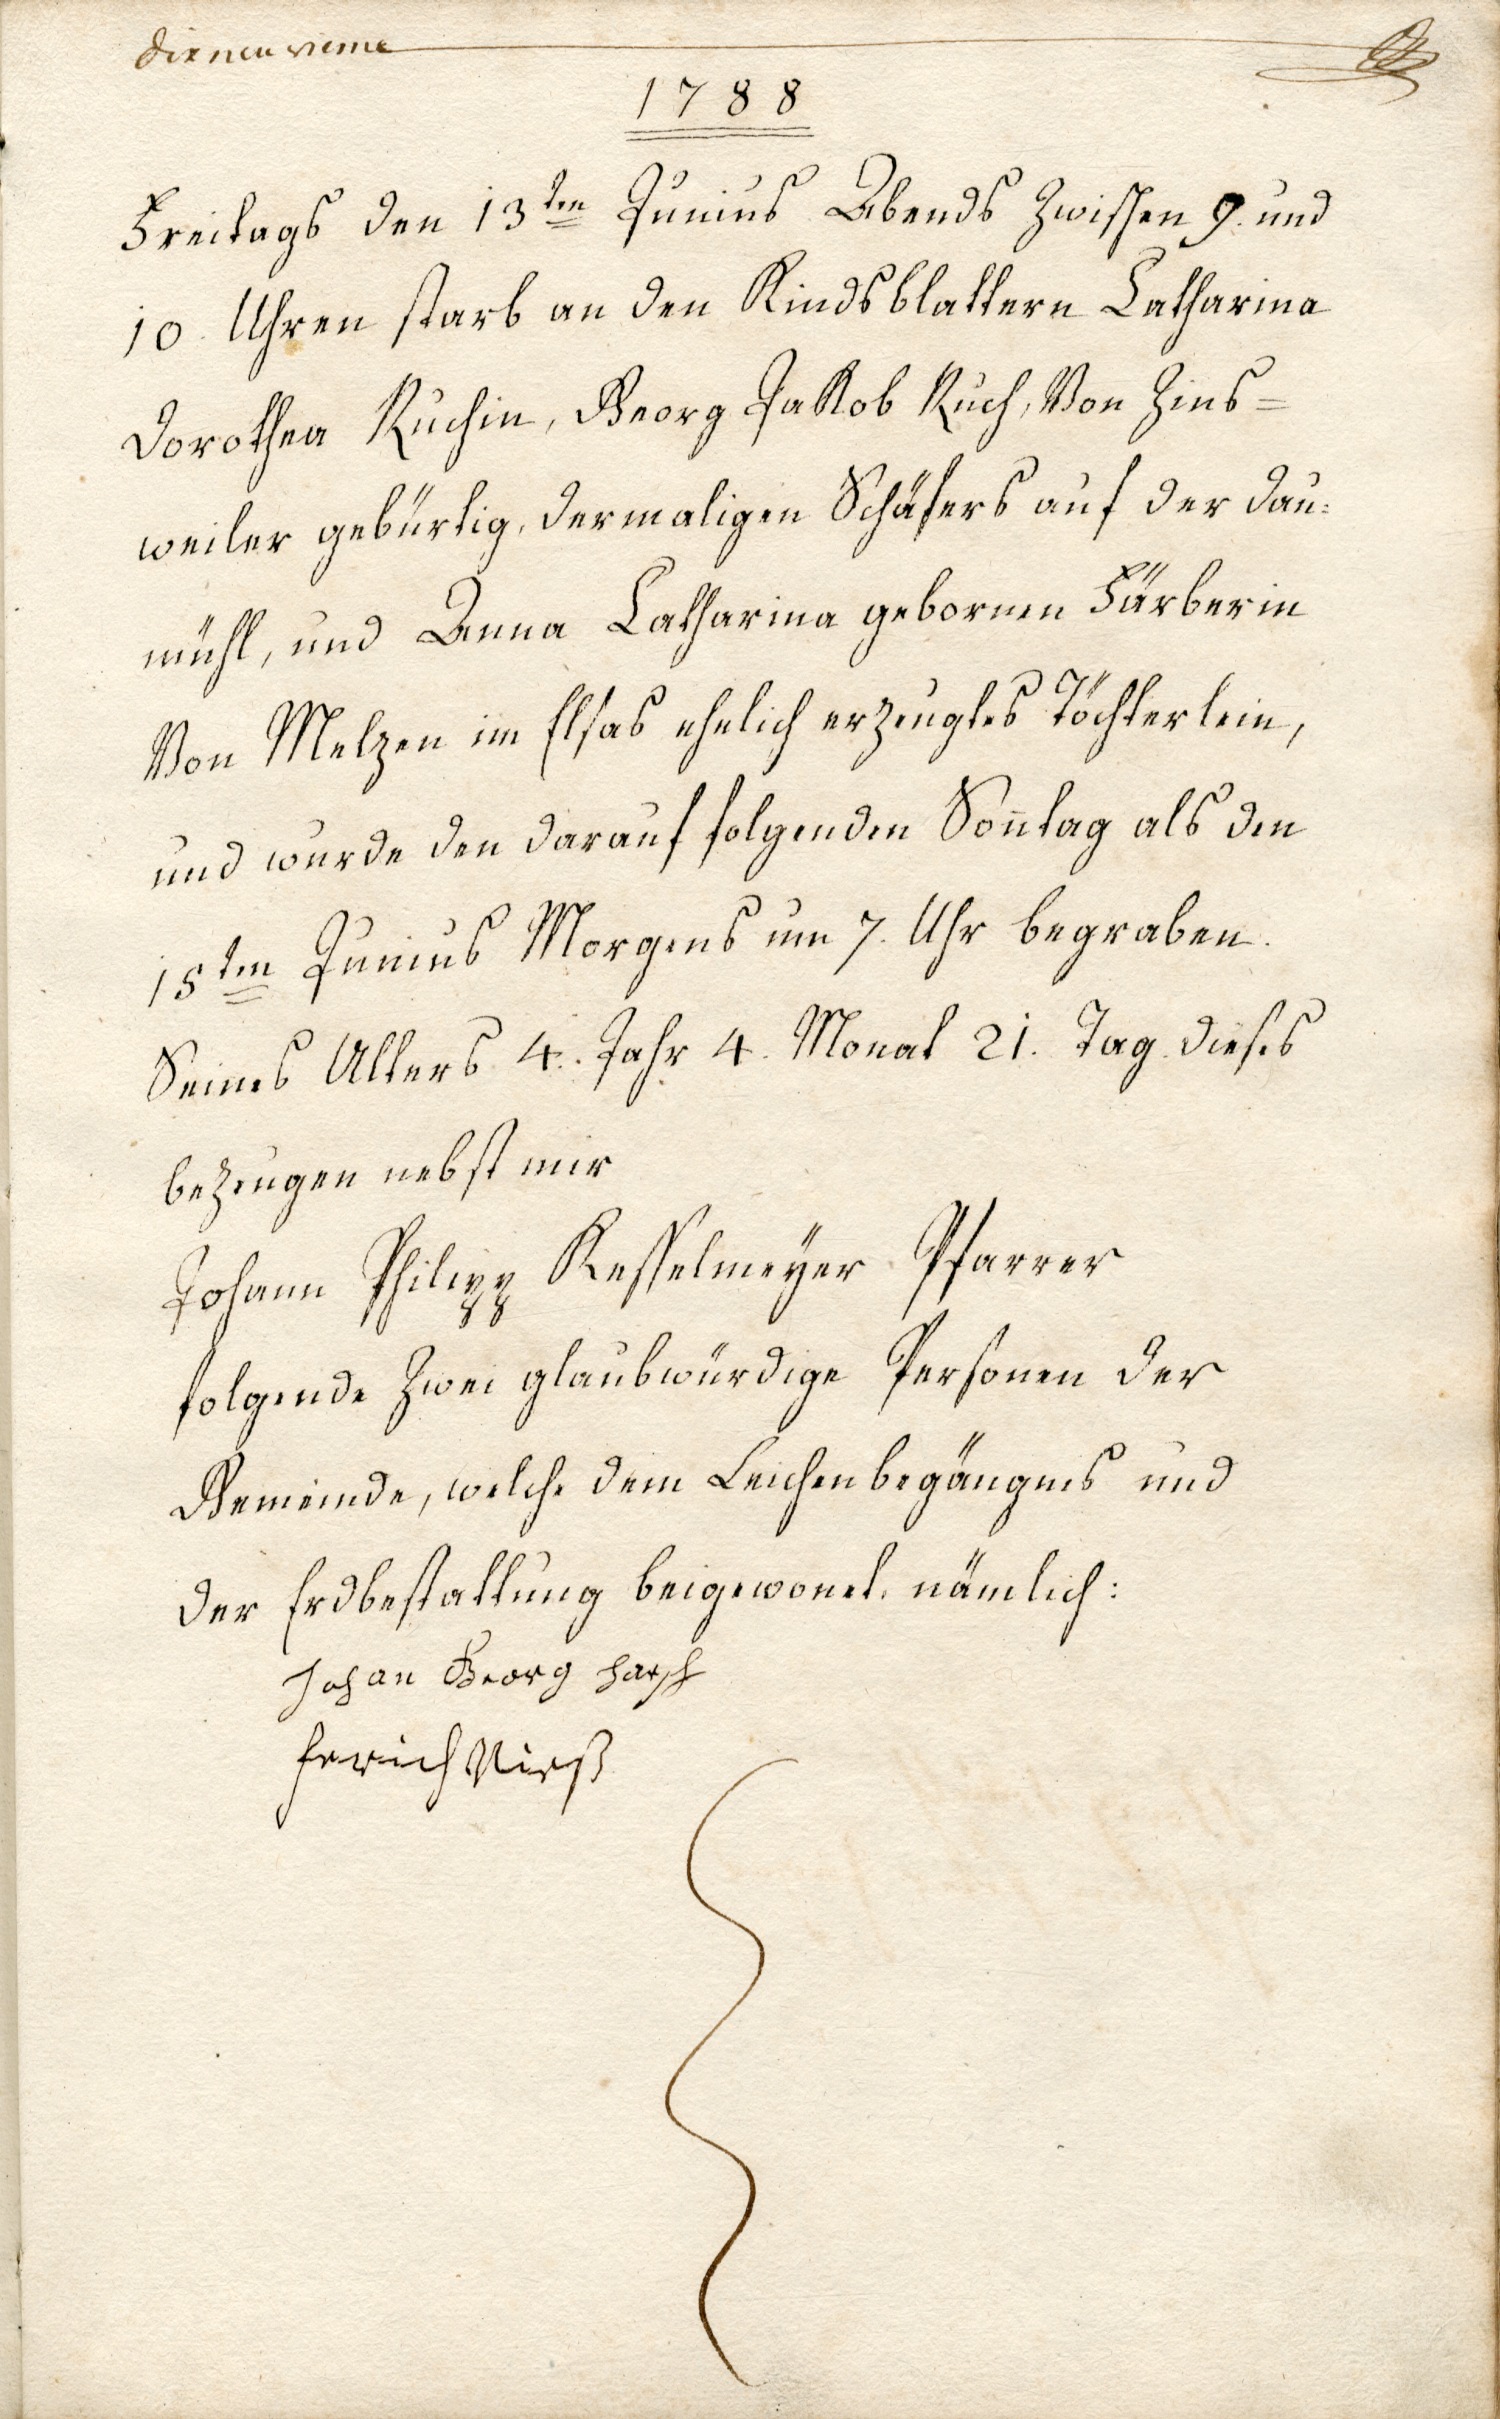 dixneuvieme
1788
Freitags den 13ten Junius Abends zwischen 9. und
10. Uhren starb an den Kindsblattern Catharina
Dorothea Ruchin, Georg Jakob Ruch, Von Zins=
weiler gebürtig, dermaligen Schäfers auf der Dau:
mühl, und Anna Catharina gebornen Färberin
Von Melzen im Elsas ehelich erzeugtes Töchterlein,
und wurde den darauf folgenden Soñtag als den
15ten Junius Morgens um 7. Uhr begraben.
Seines Alters 4. Jahr 4. Monat 21. Tag. dieses
bezeugen nebst mir
Johann Philipp Kesselmeÿer Pfarrer
folgende zwei glaubwürdige Personen der
Gemeinde, welche dem Leichenbegängnis und
der Erdbestattung beigewonet, nämlich:
Johan Georg